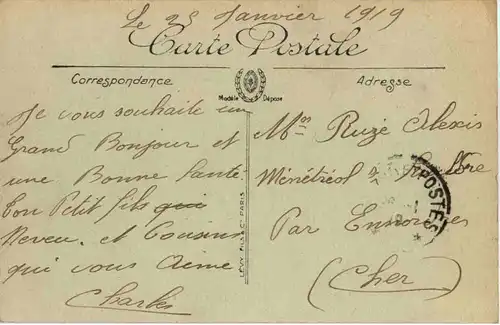 Le 25 Janvier 1919
Carte Postale
Correspondance
Modèle Déposé
Adresse
Je vous souhaite un
Grand Bonjour et
une Bonne Santé
Ton Petit fils
Neveu. et Cousins
qui vous aime
Charles
LEVY FILS & Cie PARIS
Mon Ruzé Alexis
Ménétréol
Par
(Cher)
POSTES